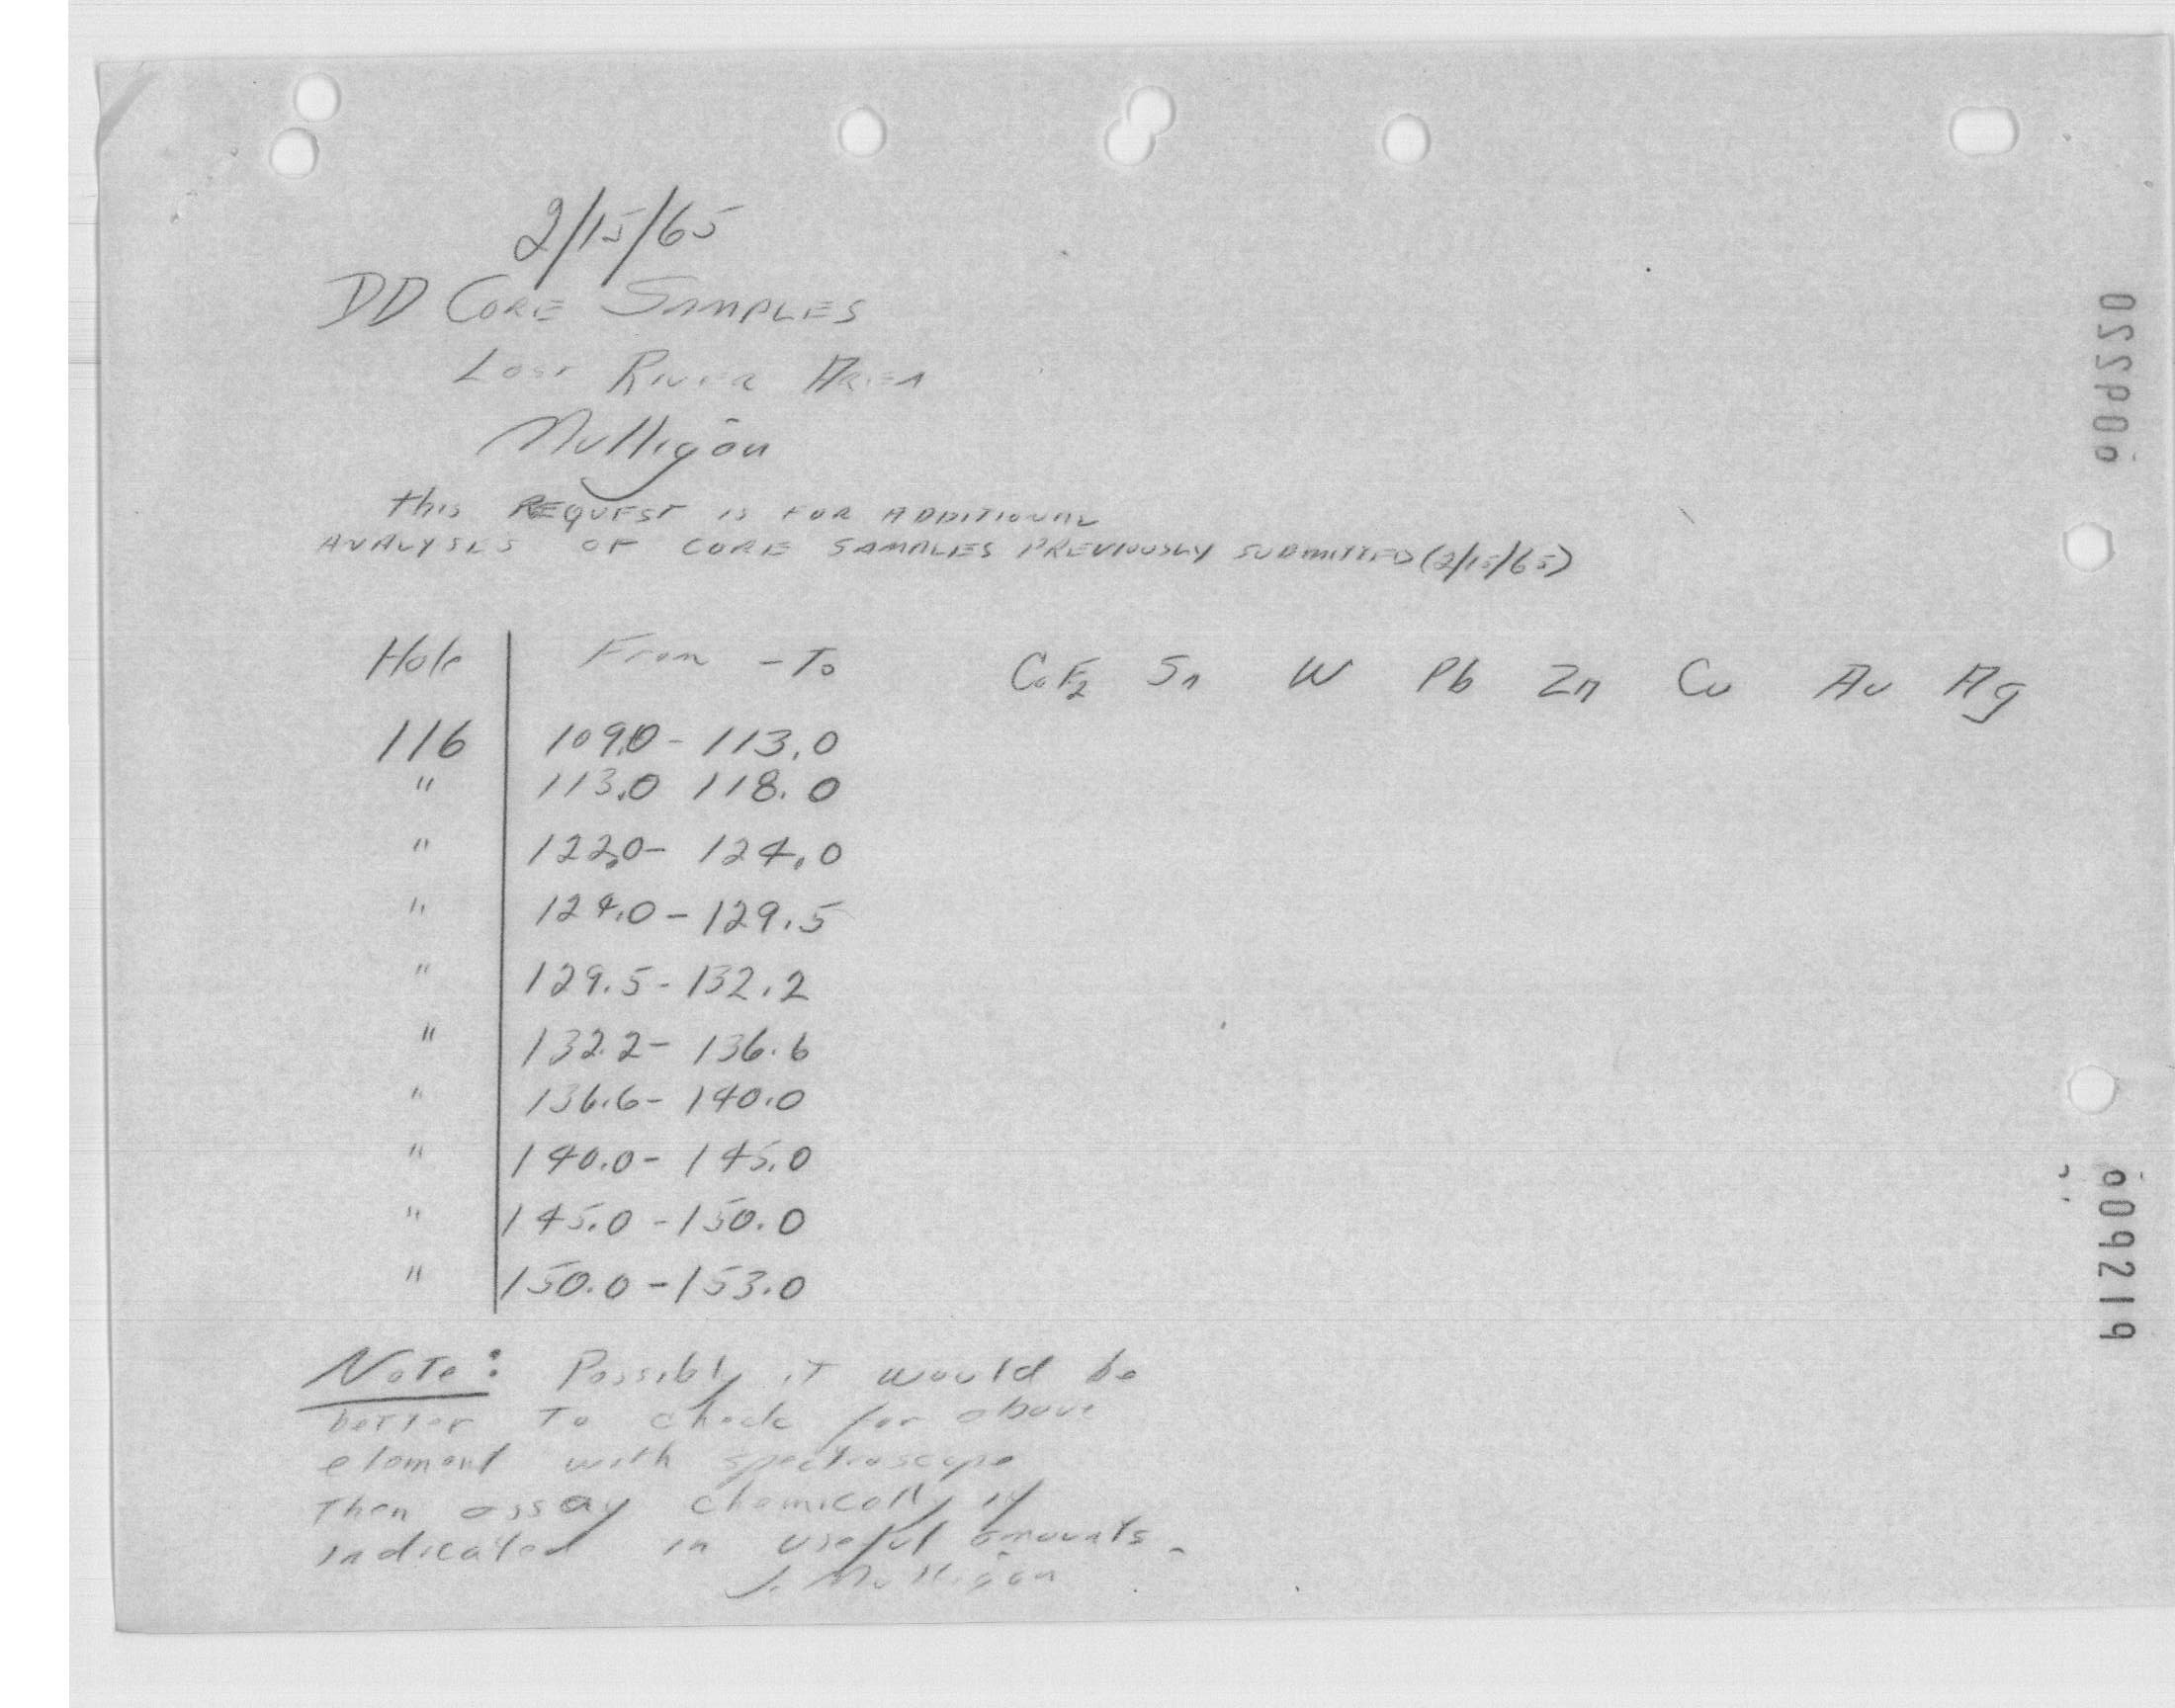 2/15/65
DD CORE SAMPLES
Lost River Area
Mulligan
this REQUEST is FOR ADDITIONAL
ANALYSES OF CORE SAMPLES PREVIOUSLY SUBMITTED (2/15/65)
Hole From - To CaF2 Sn W Pb Zn Cu Au Ag
116 109.0 - 113.0
" 113.0 118.0
" 122.0 - 124.0
" 124.0 - 129.5
" 129.5 - 132.2
" 132.2 - 136.6
" 136.6 - 140.0
" 140.0 - 145.0
" 145.0 - 150.0
" 150.0 - 153.0
Note: Possibly it would be
better To check for above
element with spectroscope
Then assay chemically if
indicated in useful amounts.
J. Mulligan